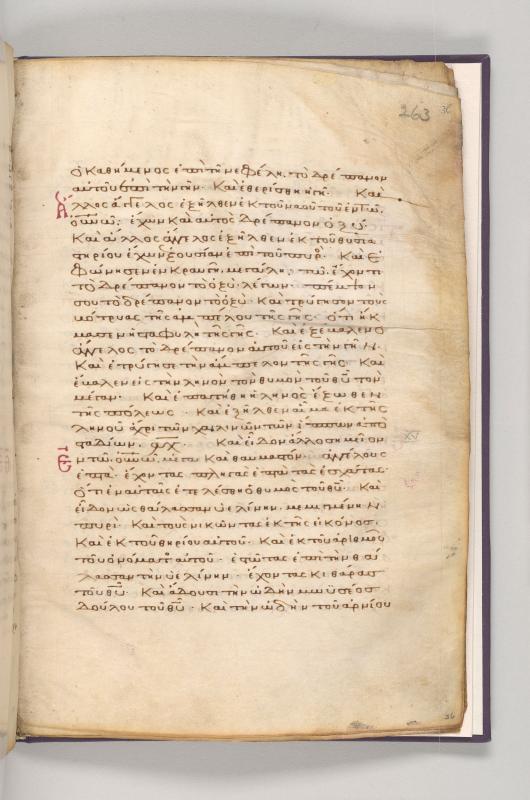 263 36
ὁ καθήμενος ἐπὶ τὴν νεφέλην τὸ δρέπανον
αὐτοῦ ἐπὶ τὴν γῆν· καὶ ἐθερίσθη ἡ γῆ· Καὶ
ἄλλος ἄγγελος ἐξῆλθεν ἐκ τοῦ ναοῦ τοῦ ἐν τῶ
οὐνῶ, ἔχων καὶ αὐτὸς δρέπανον ὀξύ·
Καὶ ἄλλος ἄγγελος ἐξῆλθεν ἐκ τοῦ θυσια
στηρίου ἔχων ἐξουσίαν ἐπὶ τοῦ πυρός· Καὶ ἐ
φώνησεν ἐν κραυγῆ μεγάλη, τῶ ἔχοντι
τὸ δρέπανον τὸ ὀξὺ λέγων· πέμψον
σου τὸ δρέπανον τὸ ὀξύ· Καὶ τρύγησον τοὺς
βότρυας τῆς ἀμπέλου τῆς γῆς· ὅτι ἤκ
μασεν ἡ σταφυλὴ τῆς γῆς· Καὶ ἐξέβαλεν ὁ
ἄγγελος τὸ δρέπανον αὐτοῦ εἰς τὴν γῆν·
Καὶ ἐτρύγησε τὴν ἄμπελον τῆς γῆς· Καὶ
ἔβαλεν εἰς τὴν ληνὸν τοῦ θυμοῦ τοῦ θυ τὸν
μέγαν· Καὶ ἐπατήθη ἡ ληνὸς ἔξωθεν
τῆς πόλεως· Καὶ ἐξῆλθεν αἷμα ἐκ τῆς
ληνοῦ ἄχρι τῶν χαλινῶν τῶν ἵππων ἀπὸ
σταδίων, αχ· Καὶ εἶδον ἄλλο σημεῖον
ἐν τῶ οὐνῶ, μέγα καὶ θαυμαστόν· ἀγγέλους
ἑπτὰ ἔχοντας πληγὰς ἑπτὰ τὰς ἐσχάτας·
ὅτι ἐν αὐταῖς ἐτελέσθη ὁ θυμὸς τοῦ θυ· Καὶ
εἶδον ὡς θάλασσαν ὑελίνην μεμιγμένην
πυρί· Καὶ τοὺς νικῶντας ἐκ τῆς εἰκόνος·
Καὶ ἐκ τοῦ θηρίου αὐτοῦ· Καὶ ἐκ τοῦ ἀριθμοῦ
τοῦ ὀνόματος αὐτοῦ· ἑστῶτας ἐπὶ τὴν θά
λασσαν τὴν ὑελίνην· ἔχοντας κιθάρας
τοῦ θυ· Καὶ ἄδουσι τὴν ὠδὴν μωϋσέος
δούλου τοῦ θυ· Καὶ τὴν ὠδὴν τοῦ ἀρνίου
XV
36